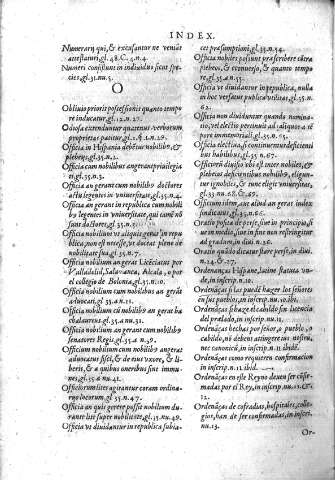 INDEX.
Numerarij qui, & excusantur ne veniāt
attestaturi, gl. 48. C. 4. n. 4.
Numeri consistunt in indiuiduo sicut spe-
cies, gl. 31. nu. 5.
O
Obliuio prioris possessionis quanto tempo
re inducatur, gl. 12. n. 27.
Odiosa extenduntur quatenus verborum
proprietas patitur, gl. 2. n. 29.
Officia in Hispania debētur nobilibꝰ, &
plebeijs gl. 35. n. 2.
Officia nobilibus augerant priuilegia
gl. 35. n. 3.
Officia an gerant cum nobilibꝰ doctores
actu legentes in vniuersitate, gl. 35. n. 4.
Officia an gerant in republica cum nobili
bꝰ legentes in vniuersitate, qui tamē nō
sunt doctores, gl. 35. n.
Officia nobilium vt aliquis gerat in repu
blica, non est necesse, vt doceat plene de
nobilitate sua gl. 35. n. 7.
Officia nobilium an gerat Licēciatus per
Valladolid, Salamanca, Alcala, o por
el colegio de Bolonia, gl. 35. n. 10.
Officia nobilium cum nobilibus an gerāt
aduocati, gl. 35. n. 11.
Officia nobilium cū nobilibꝰ an gerāt ba
chalaurei, gl. 35. n. 31.
Officia nobilium an gerat cum nobilibꝰ
senatores Regis, gl. 35. n. 39.
Officium nobilium cum nobilibꝰ an gerat
aduocatus fisci, & de eius vxore, & li-
beris, & a quibus oneribus sint immu-
nes, gl. 35. n. 42.
Officiorum lites agitantur coram ordina-
rijs locorum, gl. 35. n. 47.
Officia an quis gerere possit nobilium du-
rante lite super nobilit. gl. 35. nu. 49.
Officia vt diuidantur in republica subia-
cet præsumptioni, gl. 35. n. 54.
Officia nobiles possunt præscribere cōtra
plebeios, & econuerso, & quanto tempo
re, gl. 35. n. 55.
Officia vt diuidantur in republica, nulla
in hoc versatur publica vtilitas, gl. 35. n.
62.
Officia non diuiduntur quando nomina-
tio, vel electio pertineat ad aliquos a tē
pore immemoriali, gl. 35. n. 65.
Officia electiua, si continentur deficienti
bus habilibus, gl. 35. n. 67.
Officia diuidi vbi est mos inter nobiles, &
plebeios deficientibus nobilibus, eligun-
tur ignobiles, & nec eligit vniuersitas,
gl. 35. nu. 48. & 67.
Officium idem, aut aliud an gerat index
sindicatus, gl. 35. n. 66.
Oratio posita de otse, siue in principio, si
ue in medio, siue in fine non restringitur
ad gradum, in diui. n. 26.
Oratio quādo dicatur stare per se, in diui.
n. 24. & 27.
Ordenanças Hispane, latine statuta vn-
de, in inscrip. n. 10.
Ordenāças si las puede hazer los señores
en sus pueblos, in inscrip. nu. 10. ibi.
Ordenāças si haga el cabildo sin licencia
del prelado, in inscrip. nu. 10.
Ordenāças hechas por señor, o pueblo, o
cabildo, nō deben attingere ius nostrū,
nec canonicū, in inscrip. n. 11. ibid.
Ordenāças como requieren confirmacion
in inscrip. n. 11. ibid.
Ordenāças en este Reyno deuen ser cōfir-
madas por el Rey, in inscrip. nu. 12. &
12.
Ordenāças de cofradias, hospitales, cole-
gios, han de ser confirmadas, in inscri.
nu. 13.
Or-